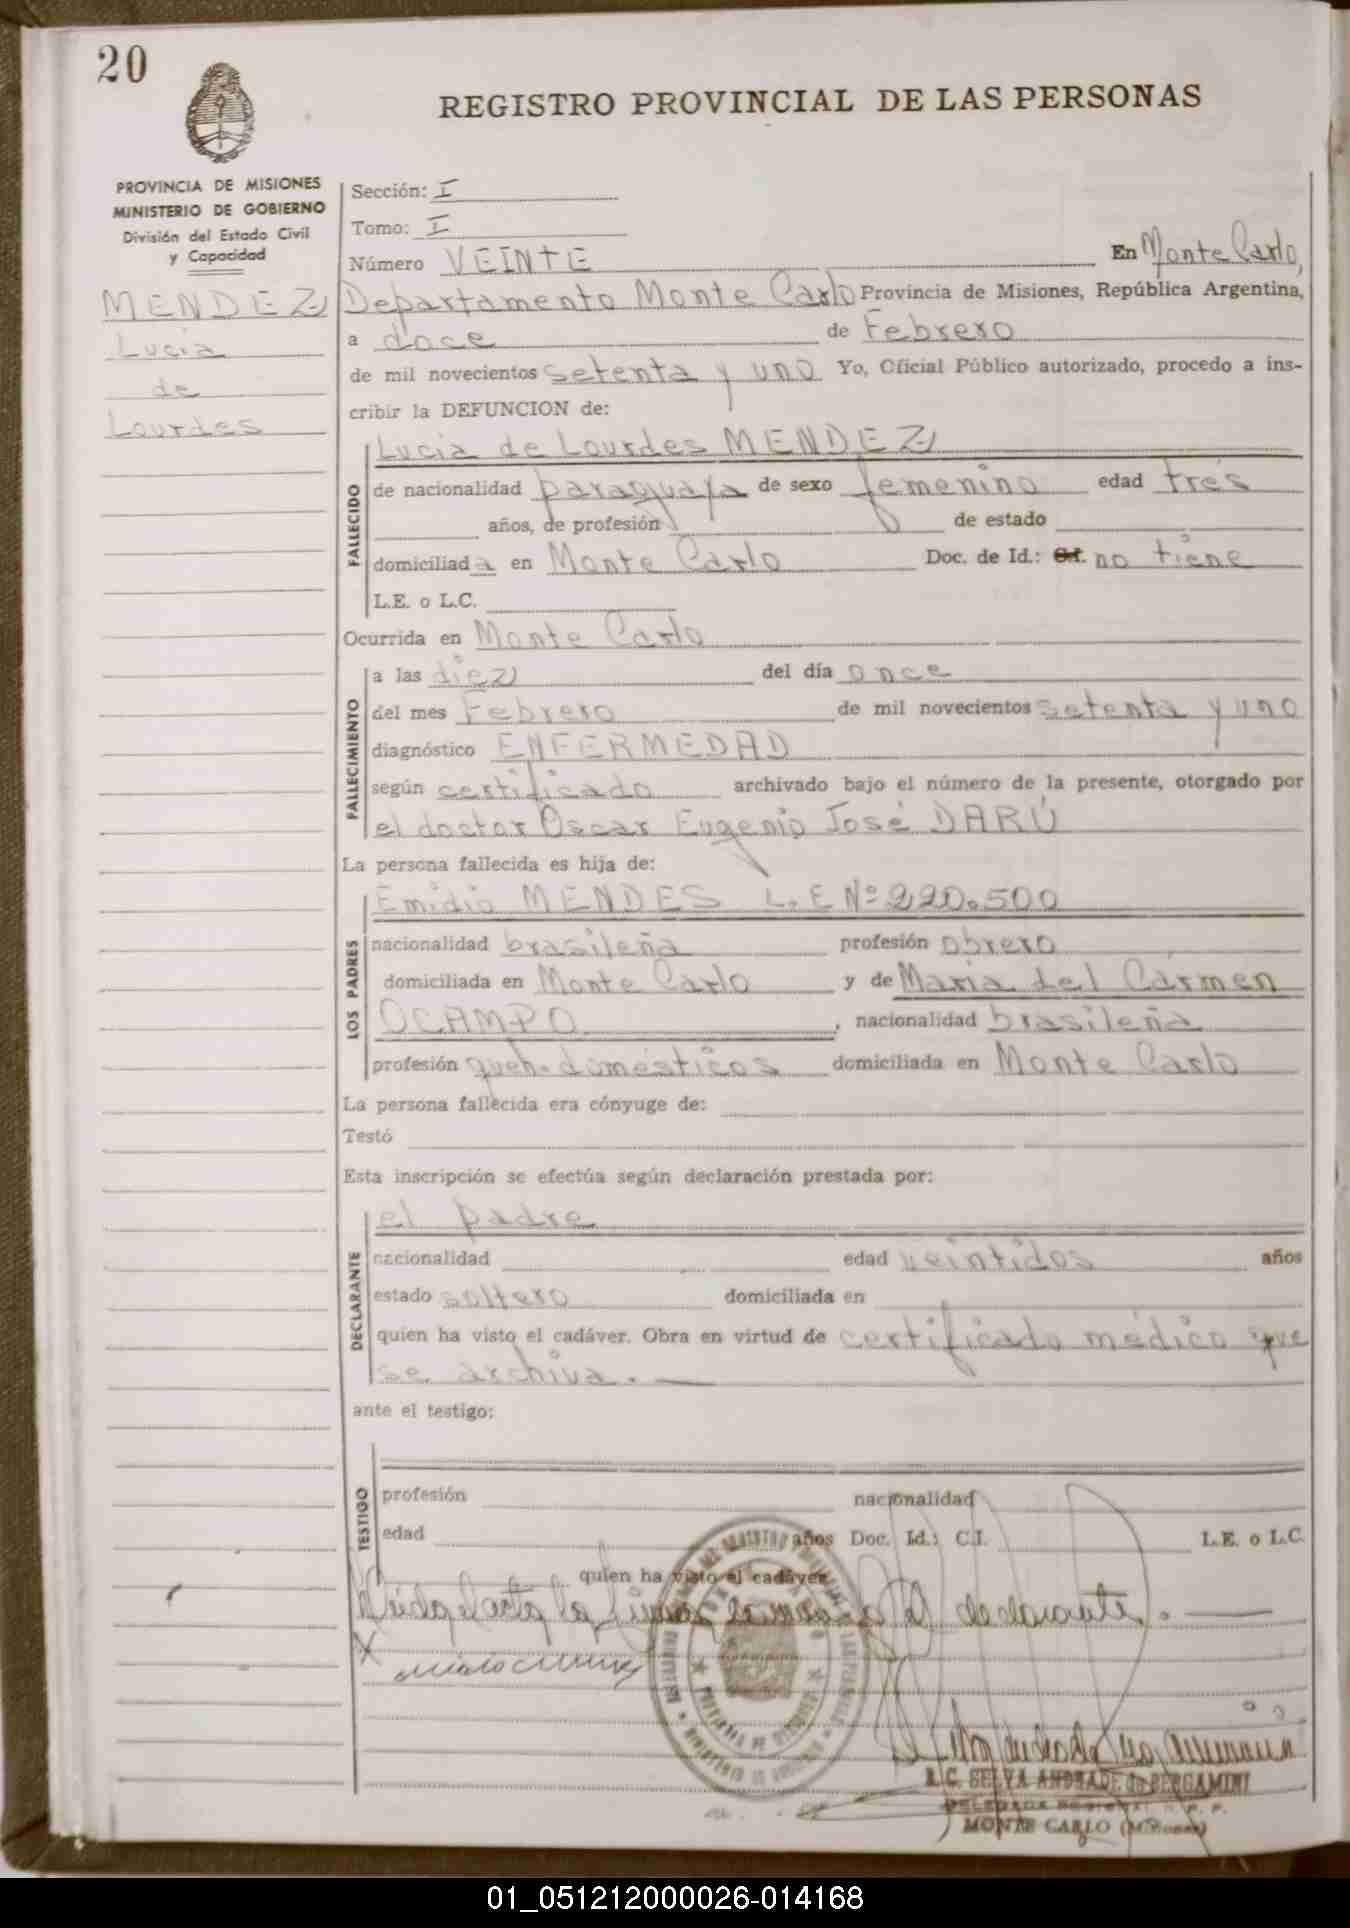 20
REGISTRO PROVINCIAL DE LAS PERSONAS
PROVINCIA DE MISIONES
MINISTERIO DE GOBIERNO
División del Estado Civil
y Capacidad
MENDEZ
Lucia
de
Lourdes
Sección: I
Tomo: I
Número VEINTE En Monte Carlo,
Departamento Monte Carlo Provincia de Misiones, República Argentina,
a doce de Febrero
de mil novecientos setenta y uno Yo, Oficial Público autorizado, procedo a ins-
cribir la DEFUNCION de:
Lucia de Lourdes MENDEZ
FALLECIDO
de nacionalidad paraguaya de sexo femenino edad tres
años, de profesión de estado
domiciliada en Monte Carlo Doc. de Id.: no tiene
L.E. o L.C.
Ocurrida en Monte Carlo
FALLECIMIENTO
a las diez del día once
del mes Febrero de mil novecientos setenta y uno
diagnóstico ENFERMEDAD
según certificado archivado bajo el número de la presente, otorgado por
el doctor Oscar Eugenio José DARÚ
La persona fallecida es hija de:
LOS PADRES
Emidio MENDES L.E Nº 220.500
nacionalidad brasileña profesión obrero
domiciliada en Monte Carlo y de Maria del Cármen
OCAMPO, nacionalidad brasileña
profesión queh. domésticos domiciliada en Monte Carlo
La persona fallecida era cónyuge de:
Testó
Esta inscripción se efectúa según declaración prestada por:
DECLARANTE
el padre
nacionalidad edad veintidos años
estado soltero domiciliada en
quien ha visto el cadáver. Obra en virtud de certificado médico que
se archiva.
ante el testigo:
TESTIGO
profesión nacionalidad
edad años Doc. Id.: C.I. L.E. o L.C.
quien ha visto el cadáver
Leida el acta la firma el declarante.
X
SELVA ANDRADE de BERGAMINI
MONTE CARLO (Misiones)
01_051212000026-014168